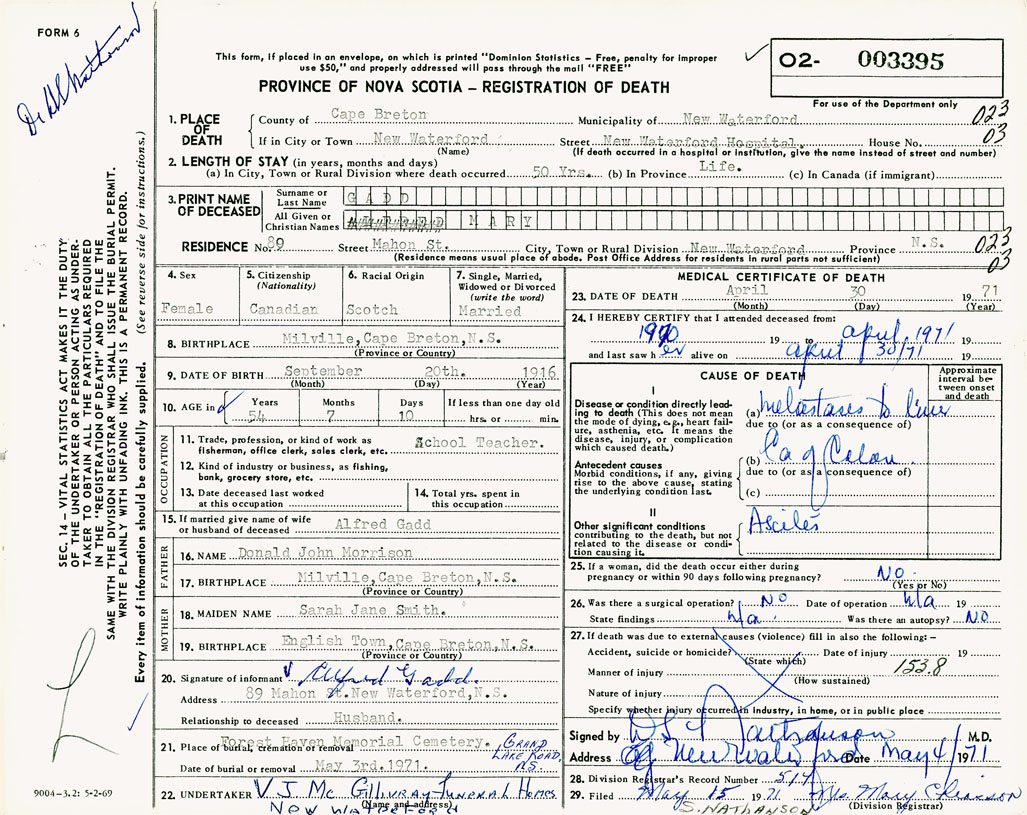 FORM 6
This form, if placed in an envelope, on which is printed "Dominion Statistics - Free, penalty for improper
use $50," and properly addressed will pass through the mail "FREE"
PROVINCE OF NOVA SCOTIA – REGISTRATION OF DEATH
O2- 003395
For use of the Department only
1. PLACE OF DEATH
County of Cape Breton Municipality of New Waterford 023
If in City or Town New Waterford Street New Waterford Hospital. House No. 03
(Name) (If death occurred in a hospital or institution, give the name instead of street and number)
2. LENGTH OF STAY (in years, months and days)
(a) In City, Town or Rural Division where death occurred 50 Yrs. (b) In Province Life. (c) In Canada (if immigrant)
3. PRINT NAME OF DECEASED
Surname or Last Name GADD
All Given or Christian Names MARY
RESIDENCE No. 89 Street Mahon St. City, Town or Rural Division New Waterford Province N.S. 023
(Residence means usual place of abode. Post Office Address for residents in rural parts not sufficient) 03
4. Sex
Female
5. Citizenship
(Nationality)
Canadian
6. Racial Origin
Scotch
7. Single, Married,
Widowed or Divorced
(write the word)
Married
8. BIRTHPLACE Milville, Cape Breton, N.S.
(Province or Country)
9. DATE OF BIRTH September 20th. 1916
(Month) (Day) (Year)
10. AGE in Years Months Days If less than one day old
54 7 10 hrs. or min.
OCCUPATION
11. Trade, profession, or kind of work as School Teacher.
fisherman, office clerk, sales clerk, etc.
12. Kind of industry or business, as fishing,
bank, grocery store, etc.
13. Date deceased last worked
at this occupation
14. Total yrs. spent in
this occupation
15. If married give name of wife
or husband of deceased Alfred Gadd
FATHER
16. NAME Donald John Morrison
17. BIRTHPLACE Milville, Cape Breton, N.S.
(Province or Country)
MOTHER
18. MAIDEN NAME Sarah Jane Smith.
19. BIRTHPLACE English Town, Cape Breton, N.S.
(Province or Country)
20. Signature of informant Alfred Gadd.
Address 89 Mahon St. New Waterford, N.S.
Relationship to deceased Husband.
21. Place of burial, cremation or removal Forest Haven Memorial Cemetery. GRAND
LAKE ROAD,
N.S.
Date of burial or removal May 3rd. 1971.
22. UNDERTAKER V.J. Mc Gillivray Funeral Homes
(Name and address)
New Waterford
MEDICAL CERTIFICATE OF DEATH
23. DATE OF DEATH April 30 1971
(Month) (Day) (Year)
24. I HEREBY CERTIFY that I attended deceased from:
1970 19 to april, 1971
and last saw her alive on april 30/71 19
CAUSE OF DEATH
Approximate
interval be-
tween onset
and death
I
Disease or condition directly lead-
ing to death (This does not mean
the mode of dying, e.g., heart fail-
ure, asthenia, etc. It means the
disease, injury, or complication
which caused death.)
(a) Metastases to liver
due to (or as a consequence of)
Antecedent causes
Morbid conditions, if any, giving
rise to the above cause, stating
the underlying condition last.
(b) Ca of Colon
due to (or as a consequence of)
(c)
II
Other significant conditions
contributing to the death, but not
related to the disease or condi-
tion causing it.
Ascites
25. If a woman, did the death occur either during
pregnancy or within 90 days following pregnancy? NO
(Yes or No)
26. Was there a surgical operation? NO Date of operation n/a 19
State findings n/a. Was there an autopsy? NO
27. If death was due to external causes (violence) fill in also the following: –
Accident, suicide or homicide? Date of injury 19
(State which)
Manner of injury 153.8
(How sustained)
Nature of injury
Specify whether injury occurred in industry, in home, or in public place
Signed by Nathanson M.D.
Address New Waterford Date May 4/ 1971
28. Division Registrar's Record Number 514
29. Filed May 15 1971 Mrs. Mary
S. NATHANSON (Division Registrar)
SEC. 14 – VITAL STATISTICS ACT MAKES IT THE DUTY
OF THE UNDERTAKER OR PERSON ACTING AS UNDER-
TAKER TO OBTAIN ALL THE PARTICULARS REQUIRED
IN THE "REGISTRATION OF DEATH" AND TO FILE THE
SAME WITH THE DIVISION REGISTRAR WHO SHALL ISSUE THE BURIAL PERMIT.
WRITE PLAINLY WITH UNFADING INK. THIS IS A PERMANENT RECORD.
Every item of information should be carefully supplied. (See reverse side for instructions.)
9004-3.2: 5-2-69